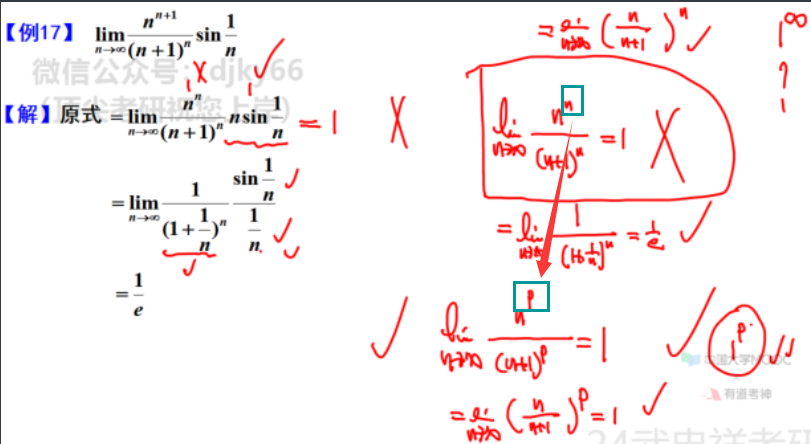 【例17】 lim n→∞ n^{n+1}/(n+1)^n sin 1/n
微信公众号:djky66
(顶尖考研祝您上岸)
【解】原式 = lim n→∞ n^n/(n+1)^n n sin 1/n = 1 ×
= lim n→∞ 1/(1+1/n)^n · (sin 1/n)/(1/n)
= 1/e
= lim n→∞ (n/n+1)^n ✓
1^∞
?
1
lim n→∞ n^n/(n+1)^n = 1 ×
= lim n→∞ 1/(1+1/n)^n = 1/e ✓
✓ lim n→∞ n^p/(n+1)^p = 1 ✓ 1^p
= lim n→∞ (n/n+1)^p = 1 ✓
中国大学MOOC
有道考神
24武忠祥考研